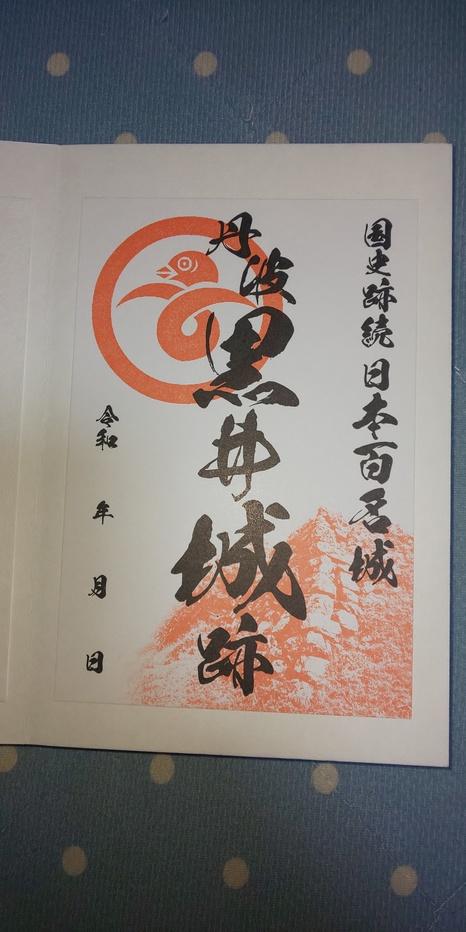 国史跡続日本百名城
丹波
黒井城跡
令和 年 月 日